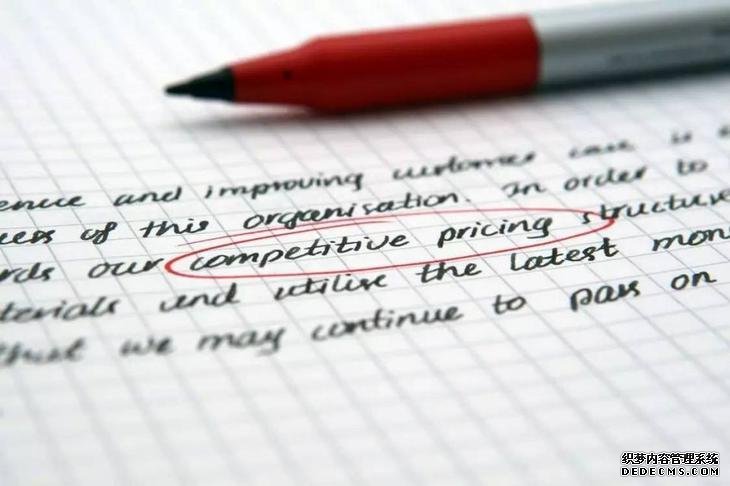 ence and improving customer care is
ness of this organisation. In order to
rds our competitive pricing structure
terials and utilise the latest mon
that we may continue to pass on
织梦内容管理系统
DEDECMS.COM